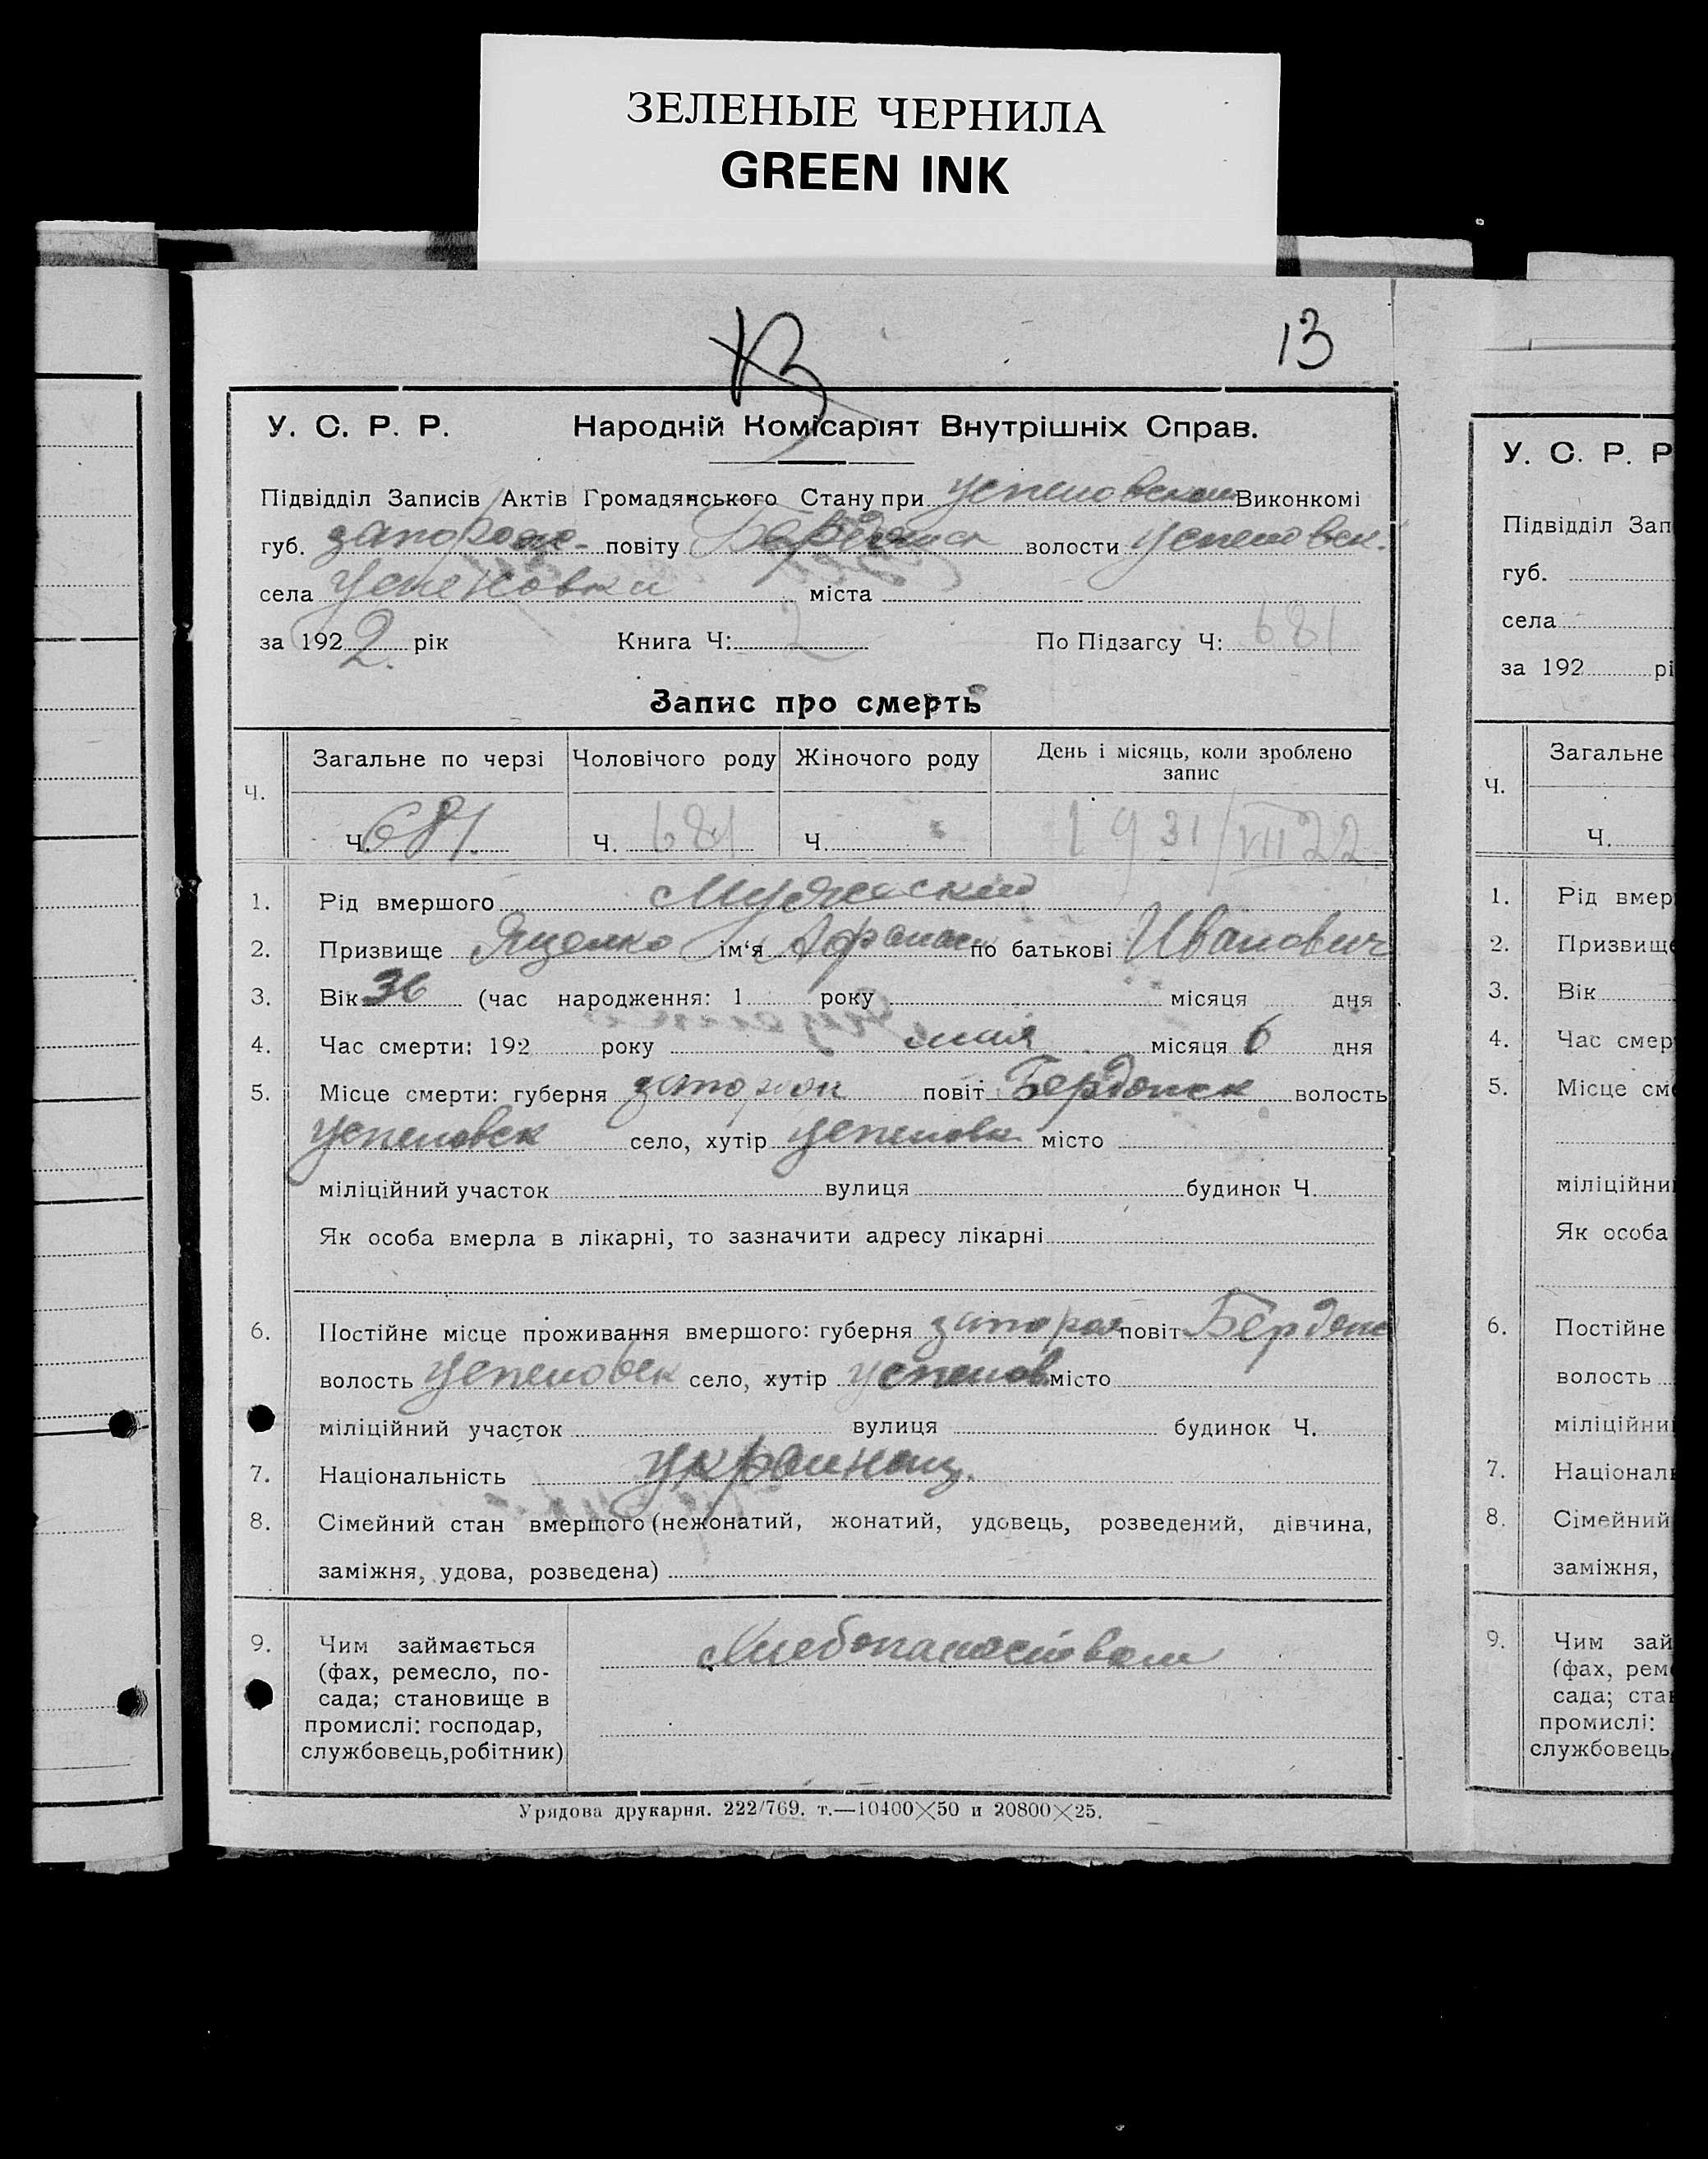 ЗЕЛЕНЫЕ ЧЕРНИЛА
GREEN INK
13
13
У. С. Р. Р. Народній Комісаріят Внутрішніх Справ.
Підвідділ Записів Актів Громадянського Стану при Успеновском Виконкомі
губ. запорож. повіту Бердянск волости Успеновск.
села Успеновки міста
за 1922 рік Книга Ч: 2 По Підзагсу Ч: 681
Запис про смерть
Ч. Загальне по черзі Чоловічого роду Жіночого роду День і місяць, коли зроблено запис
Ч. 681. Ч. 681 Ч. 31/VII 22
1. Рід вмершого Мужеский
2. Призвище Яценко ім‘я Афанас по батькові Иванович
3. Вік 36 (час народження: 1 року місяця дня
4. Час смерти: 192 року місяця 6 дня
5. Місце смерти: губерня запорож повіт Бердянск волость
Успеновск село, хутір Успеновк місто
міліційний участок вулиця будинок Ч.
Як особа вмерла в лікарні, то зазначити адресу лікарні
6. Постійне місце проживання вмершого: губерня запорож повіт Бердянс
волость Успеновск село, хутір Успенов місто
міліційний участок вулиця будинок Ч.
7. Національність
8. Сімейний стан вмершого (нежонатий, жонатий, удовець, розведений, дівчина,
заміжня, удова, розведена)
9. Чим займається Хлебопашеством
(фах, ремесло, по-
сада; становище в
промислі: господар,
службовець,робітник)
Урядова друкарня. 222/769. т.—10400×50 и 20800×25.
У. С. Р. Р
Підвідділ Зап
губ.
села
за 192 рі
Загальне
Ч.
Ч.
1. Рід вмер
2. Призвище
3. Вік
4. Час смер
5. Місце сме
міліційни
Як особа
6. Постійне
волость
міліційни
7. Національ
8. Сімейний
заміжня,
9. Чим зай
(фах, реме
сада; ста
промислі:
службовець